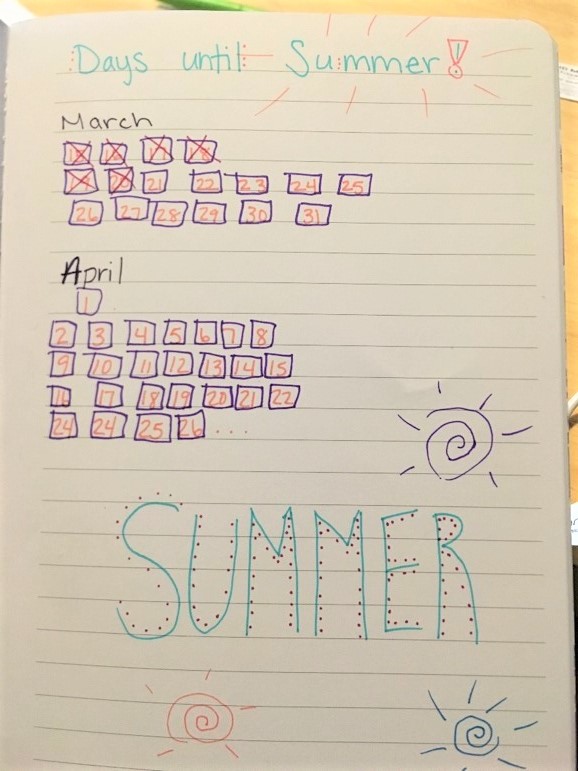 Days until Summer!
March
17 18
19 20 21 22 23 24 25
26 27 28 29 30 31
April
1
2 3 4 5 6 7 8
9 10 11 12 13 14 15
16 17 18 19 20 21 22
24 24 25 26 ...
SUMMER